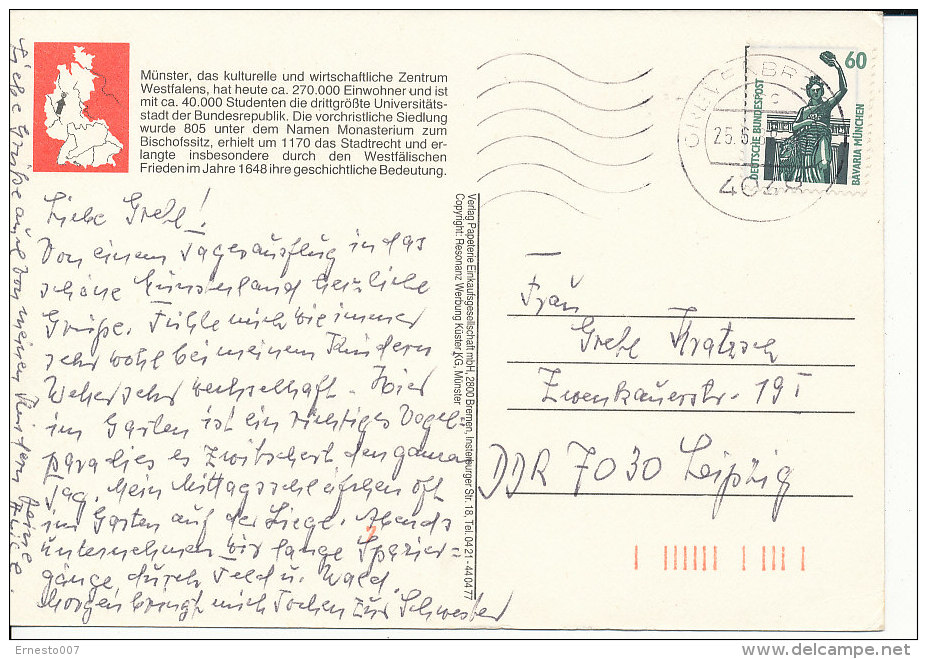 Münster, das kulturelle und wirtschaftliche Zentrum
Westfalens, hat heute ca. 270.000 Einwohner und ist
mit ca. 40.000 Studenten die drittgrößte Universitäts-
stadt der Bundesrepublik. Die vorchristliche Siedlung
wurde 805 unter dem Namen Monasterium zum
Bischofssitz, erhielt um 1170 das Stadtrecht und er-
langte insbesondere durch den Westfälischen
Frieden im Jahre 1648 ihre geschichtliche Bedeutung.
Liebe Gretl!
Von einem Tagesausflug in das
schöne Münsterland herzliche
Grüße. Fühle mich wie immer
sehr wohl bei meinen Kindern
Wetter sehr wechselhaft. Hier
im Garten ist ein richtiges Vogel=
paradies es zwitschert den ganzen
Tag. Mein Mittagsschläfchen oft
im Garten auf der Liege. Abends
unternehmen wir lange Spazier=
gänge durch Feld u. Wald.
Morgen bringt mich Jochen zur Schwester
Liebe Grüße auch von meinen Kindern Deine
Verlag Papeterie Einkaufsgesellschaft mbH, 2800 Bremen, Insterburger Str. 18, Tel. 04 21 - 44 04 77
Copyright: Resonanz Werbung Küster KG, Münster
60
DEUTSCHE BUNDESPOST
BAVARIA MÜNCHEN
Frau
Gretl Kratzsch
Zwenkauerstr. 19 I
DDR 7030 Leipzig
Ernesto007
delcampe.net